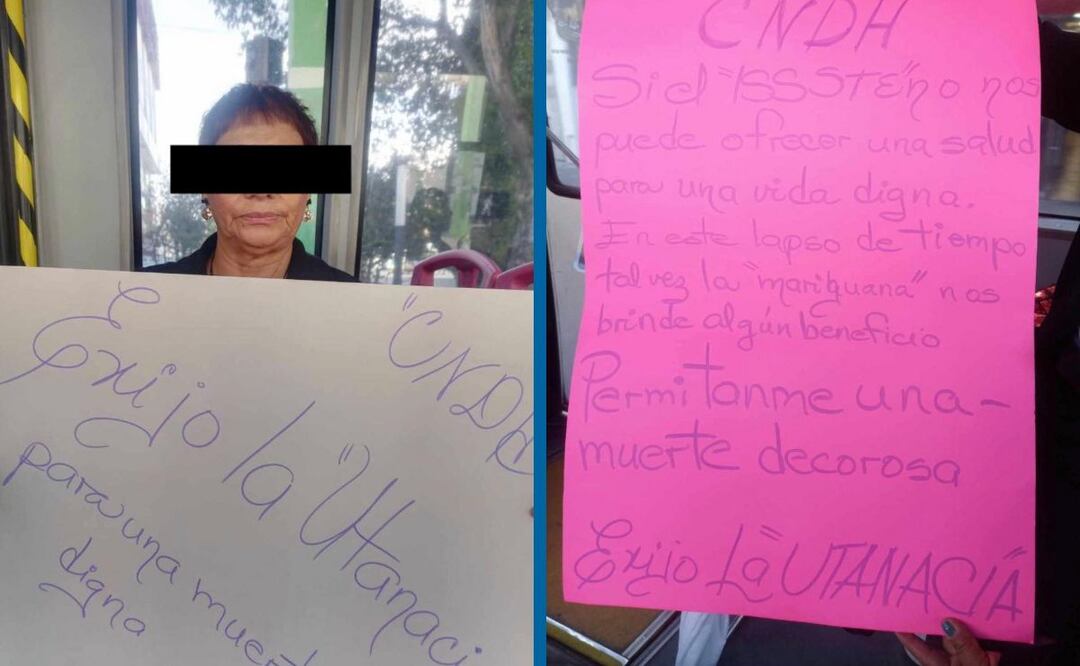 "CNDH
Exijo la "Utanaci
para una muert
digna
CNDH
Si el "ISSSTE" no nos
puede ofrecer una salud
para una vida digna.
En este lapso de tiempo
tal vez la "mariguana" nos
brinde algún beneficio
Permitanme una-
muerte decorosa
Exijo La "UTANACIA"